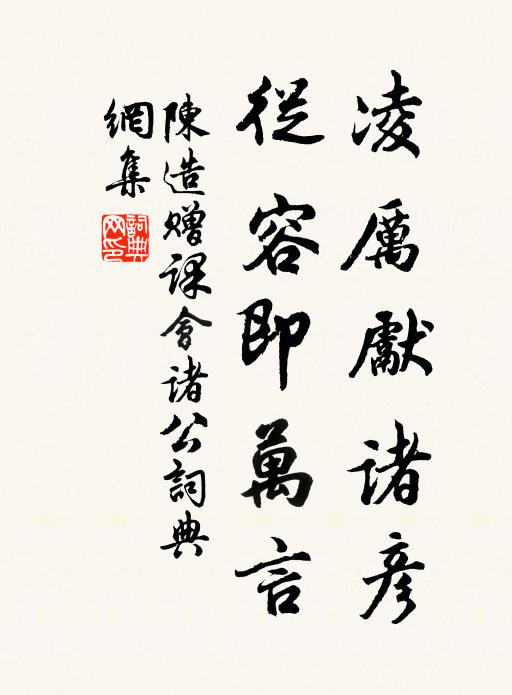 凌厲獻諸彥
從容即萬言
陳造贈課會諸公詞典
網集
詞典
网印